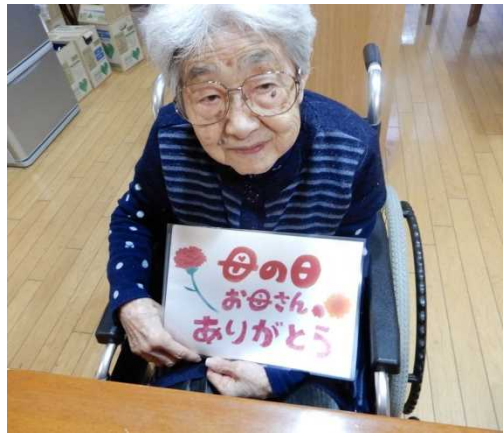 母の日
お母さん
ありがとう